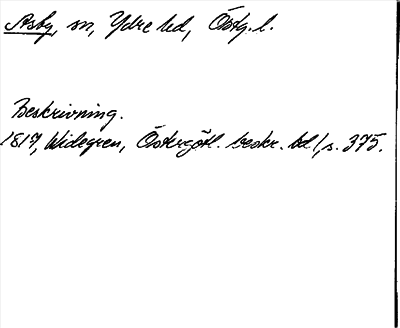 Asby, sn, Ydre hd, Östg. l.
Beskrivning.
1817, Widegren, Östergötl. beskr. bd 1, s. 375.